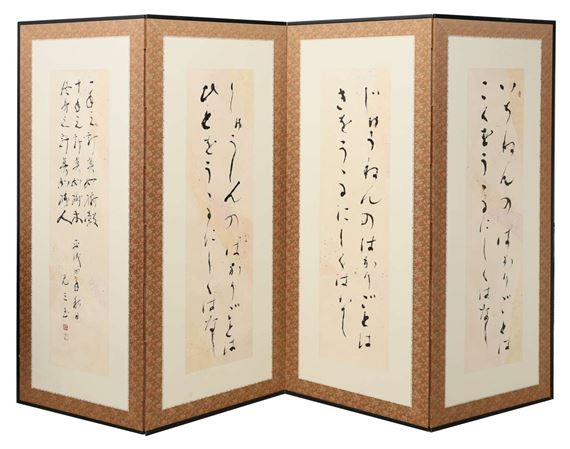 いちねんのはかりごとは
こくをううるにしくはなし
じゅうねんのはかりごとは
きをううるにしくはなし
しゅうしんのはかりごとは
ひとをううるにしくはなし
一年之計莫如樹穀
十年之計莫如樹木
終身之計莫如樹人